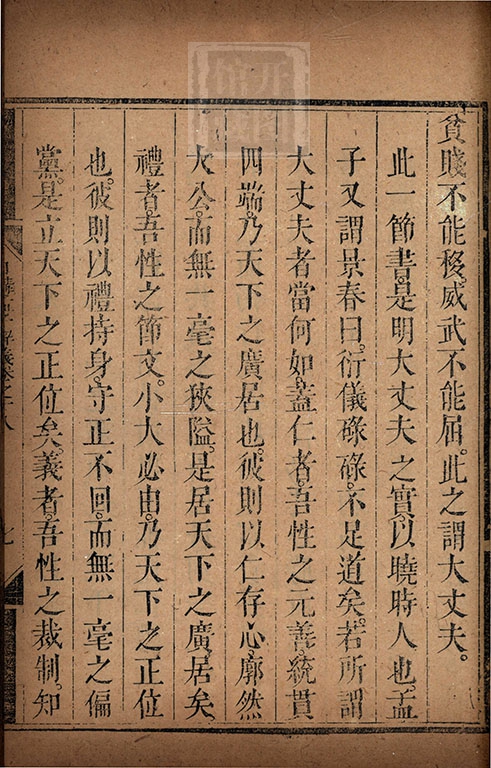 貧賤不能移。威武不能屈。此之謂大丈夫。
此一節書。是明大丈夫之實。以曉時人也。孟
子又謂景春曰。衍儀碌碌。不足道矣。若所謂
大丈夫者當何如。蓋仁者。吾性之元善。統貫
四端。乃天下之廣居也。彼則以仁存心。廓然
大公。而無一毫之狹隘。是居天下之廣居矣。
禮者。吾性之節文。小大必由。乃天下之正位
也。彼則以禮持身。守正不回。而無一毫之偏
黨。是立天下之正位矣。義者。吾性之裁制。知